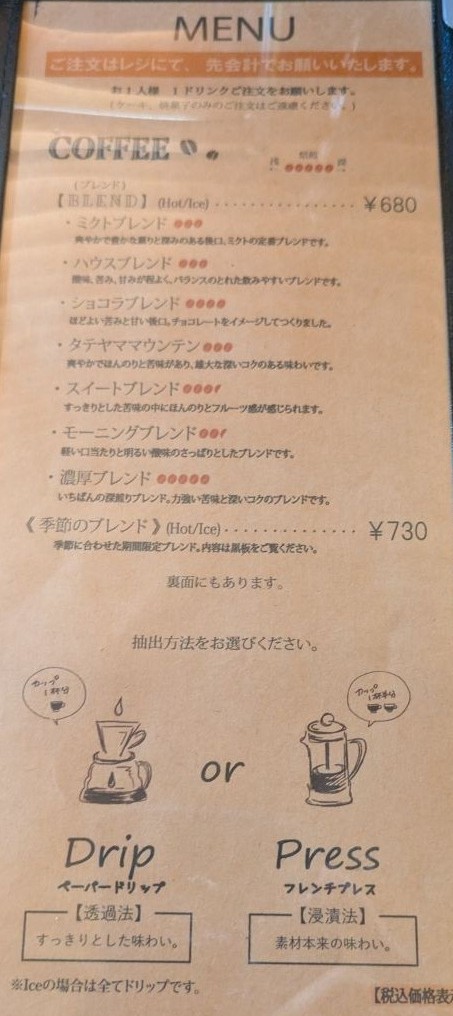 MENU
ご注文はレジにて、先会計でお願いいたします。
お1人様 1ドリンクご注文をお願いします。
(ケーキ、焼菓子のみのご注文はご遠慮ください。)
COFFEE
浅 焙煎 深
(ブレンド)
【BLEND】(Hot/Ice)・・・・・・・・・・・・・・・¥680
・ミクトブレンド
爽やかで豊かな香りと深みのある後口、ミクトの定番ブレンドです。
・ハウスブレンド
酸味、苦み、甘みが程よく、バランスのとれた飲みやすいブレンドです。
・ショコラブレンド
ほどよい苦みと甘い後口。チョコレートをイメージしてつくりました。
・タテヤママウンテン
爽やかでほんのりと苦味があり、雄大な深いコクのある味わいです。
・スイートブレンド
すっきりとした苦味の中にほんのりとフルーツ感が感じられます。
・モーニングブレンド
軽い口当たりと明るい酸味のさっぱりとしたブレンドです。
・濃厚ブレンド
いちばんの深煎りブレンド。力強い苦味と深いコクのブレンドです。
《季節のブレンド》(Hot/Ice)・・・・・・・・・・・・・・ ¥730
季節に合わせた期間限定ブレンド。内容は黒板をご覧ください。
裏面にもあります。
抽出方法をお選びください。
カップ
1杯分
カップ
1杯半分
or
Drip
ペーパードリップ
【透過法】
すっきりとした味わい。
Press
フレンチプレス
【浸漬法】
素材本来の味わい。
※Iceの場合は全てドリップです。
【税込価格表示